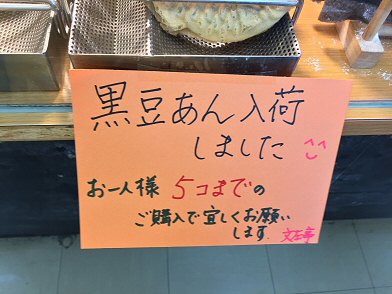 黒豆あん入荷
しました
お一人様 5コまでの
ご購入で宜しくお願い
します.